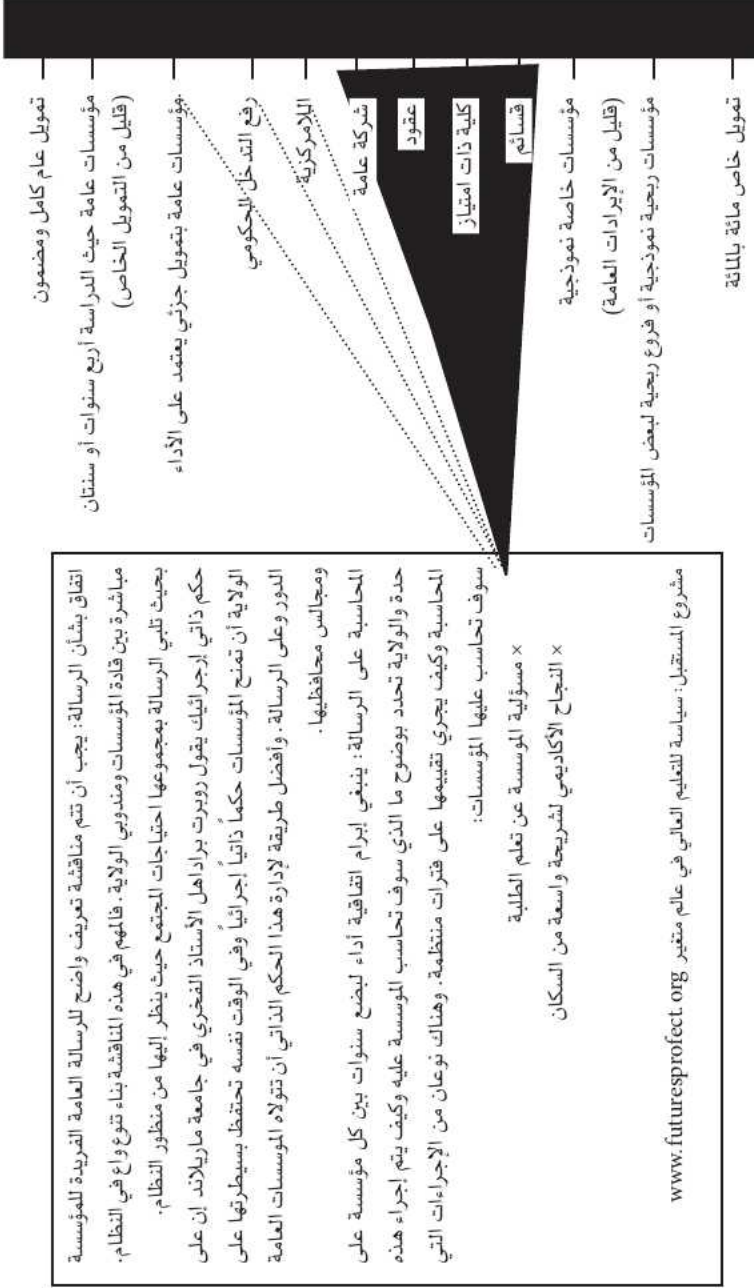 تمويل عام كامل ومضمون
مؤسسات عامة حيث الدراسة أربع سنوات أو سنتان
(قليل من التمويل الخاص)
مؤسسات عامة بتمويل جزئي يعتمد على الأداء
رفع التدخل الحكومي
اللامركزية
شركة عامة
عقود
كلية ذات امتياز
قسائم
مؤسسات خاصة نموذجية
(قليل من الإيرادات العامة)
مؤسسات ربحية نموذجية أو فروع ربحية لبعض المؤسسات
تمويل خاص مائة بالمائة
اتفاق بشأن الرسالة: يجب أن تتم مناقشة تعريف واضح للرسالة العامة الفريدة للمؤسسة
مباشرة بين قادة المؤسسات ومندوبي الولاية. فالمهم في هذه المناقشة بناء تنوع واع في النظام.
بحيث تلبي الرسالة بمجموعها احتياجات المجتمع حيث ينظر إليها من منظور النظام.
حكم ذاتي إرجرائيك يقول روبرت براداهل الأستاذ الفخري في جامعة ماريلاند إن على
الولاية أن تمنح المؤسسات حكماً ذاتياً إجرائياً وفي الوقت نفسه تحتفظ بسيطرتها على
الدور وعلى الرسالة. وأفضل طريقة لإدارة هذا الحكم الذاتي أن تتولاه الموسسات العامة
ومجالس محافظيها.
المحاسبة على الرسالة: ينبغي إبرام اتفاقية أداء لبضع سنوات بين كل مؤسسة على
حدة والولاية تحدد بوضوح ما الذي سوف تحاسب الموسسة عليه وكيف يتم إجراء هذه
المحاسبة وكيف يجري تقييمها على فترات منتظمة. وهناك نوعان من الإجراءات التي
سوف تحاسب عليها المؤسسات:
× مسؤلية الموسسة عن تعلم الطلبة
× النجاح الأكاديمي لشريحة واسعة من السكان
مشروع المستقبل: سياسة للتعليم العالي في عالم متغير www.futuresprofect.org